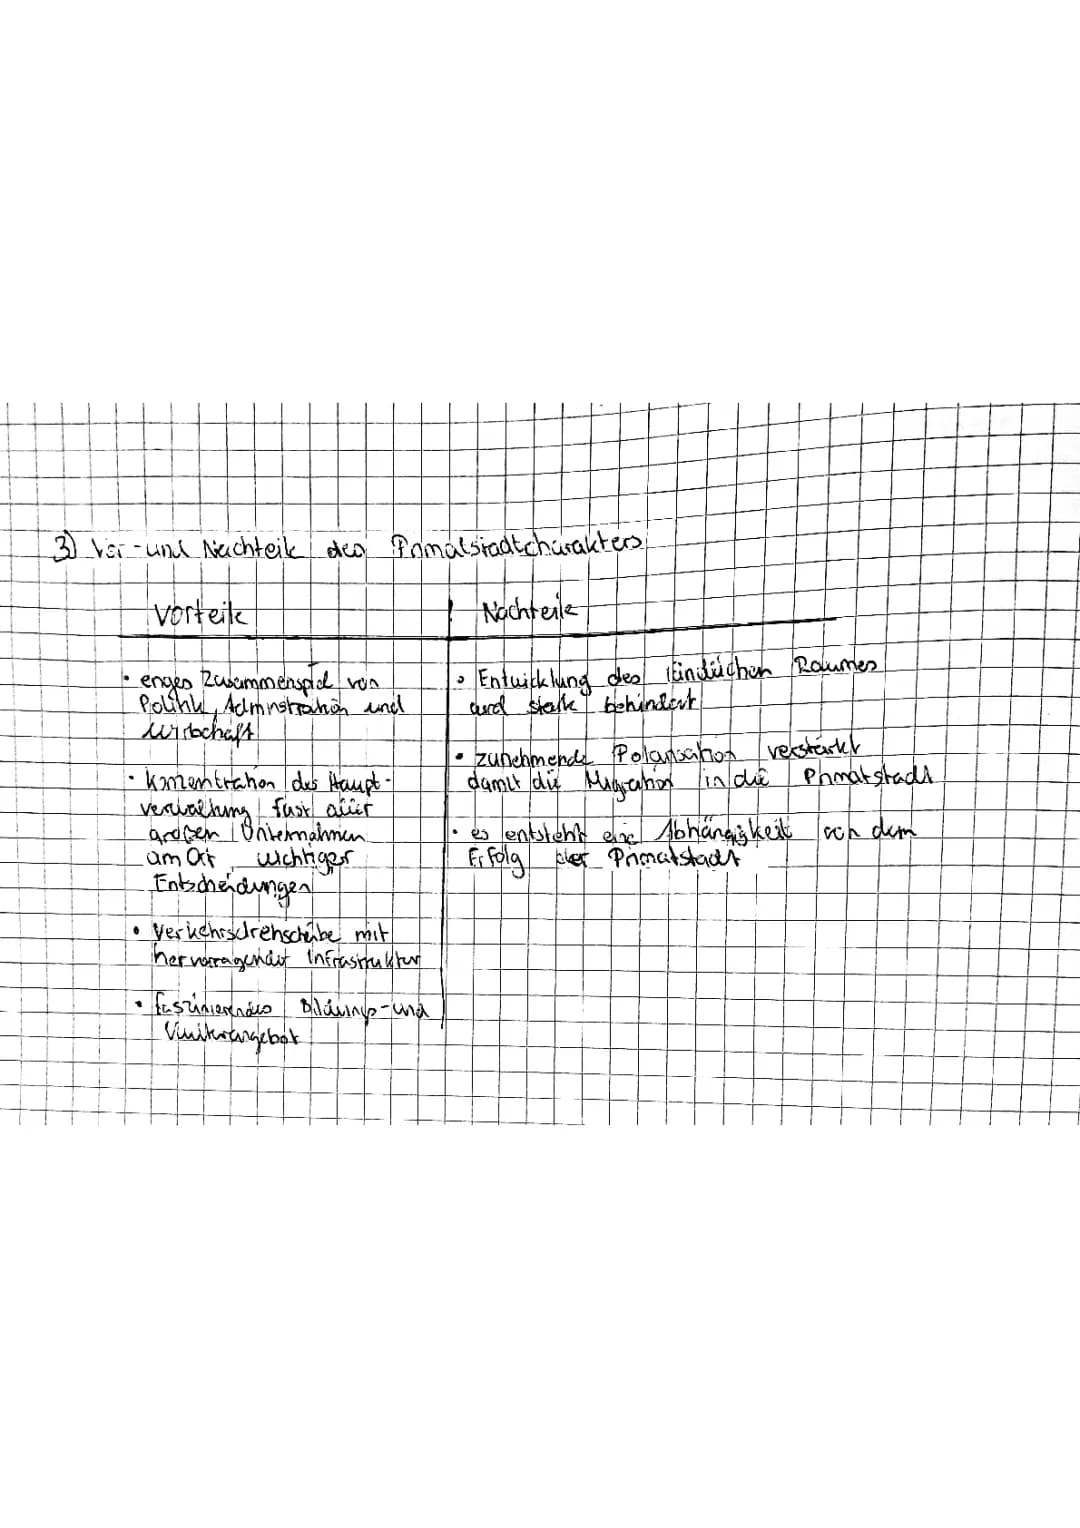 3) Vor-und Nachteile des Primatstadtcharakters
Vorteile
enges Zusammenspiel von
Politik, Adminstration und
Wirtschaft
Konzentration des Haupt-
verwaltung fast aller
großen Unternehmen
am Ort wichtiger
Entscheidungen
Verkehrsdrehscheibe mit
hervorragender Infrastruktur
faszinierendes Bildungs-und
Kulturangebot
Nachteile
Entwicklung des ländlichen Raumes
wird stark behindert
zunehmende Polarisation verstärkt
damit die Migration in die Primatstadt
es entsteht eine Abhängigkeit von dem
Erfolg der Primatstadt